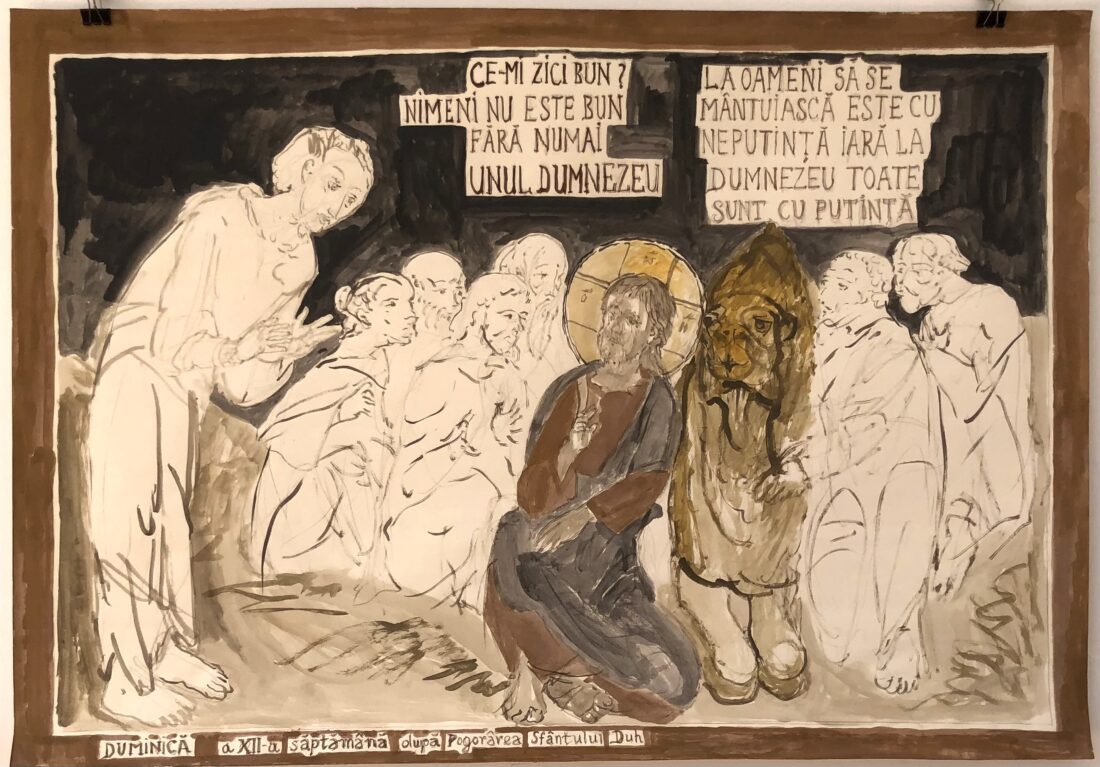 CE-MI ZICI BUN?
NIMENI NU ESTE BUN
FĂRĂ NUMAI
UNUL DUMNEZEU
LA OAMENI SĂ SE
MÂNTUIASCĂ ESTE CU
NEPUTINȚĂ IARĂ LA
DUMNEZEU TOATE
SUNT CU PUTINȚĂ
DUMINICĂ a XII-a săptămână după Pogorârea Sfântului Duh